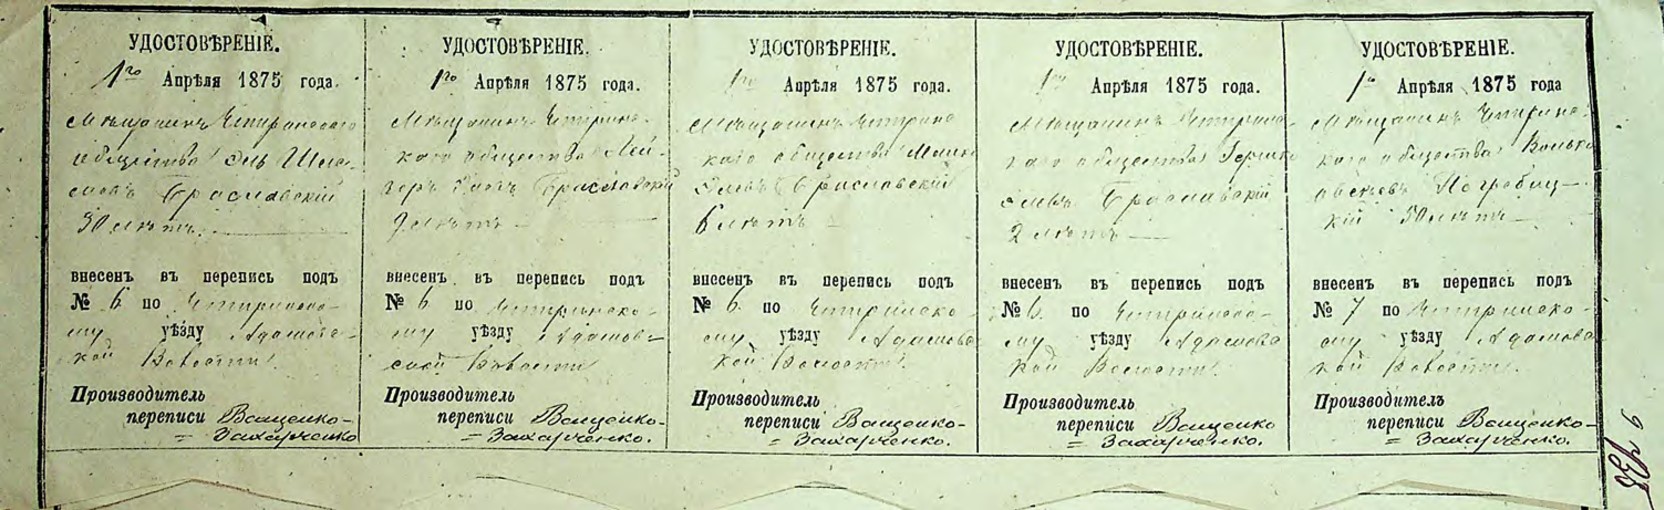 УДОСТОВѢРЕНІЕ.
1го Апрѣля 1875 года.
Мѣщанинъ Чигринскаго
общества Эль Шмо-
Браславскій
30 лѣтъ.
внесенъ въ перепись подъ
№ 6 по Чигринско-
му уѣзду Адамовс-
кой Волости
Производитель
переписи Ващенко-
= Захарченко
УДОСТОВѢРЕНІЕ.
1го Апрѣля 1875 года.
Мѣщанинъ Чигринс-
каго общества Лей-
Браславскій
9 лѣтъ
внесенъ въ перепись подъ
№ 6 по Чигринско-
му уѣзду Адамов-
ской Волости
Производитель
переписи Ващенко-
= Захарченко.
УДОСТОВѢРЕНІЕ.
1го Апрѣля 1875 года.
Мѣщанинъ Чигринс
каго общества
Браславскій
6 лѣтъ
внесенъ въ перепись подъ
№ 6 по Чигринско-
му уѣзду Адамовс
кой Волости
Производитель
переписи Ващенко-
= Захарченко.
УДОСТОВѢРЕНІЕ.
1го Апрѣля 1875 года.
Мѣщанинъ Чигринс-
каго общества Гершко
Браславскій
2 лѣтъ
внесенъ въ перепись подъ
№ 6 по Чигринско-
му уѣзду Адамовс
кой Волости
Производитель
переписи Ващенко
= Захарченко.
УДОСТОВѢРЕНІЕ.
1го Апрѣля 1875 года
Мѣщанинъ Чигринс-
каго общества Волько
Погребиц-
кій 30 лѣтъ
внесенъ въ перепись подъ
№ 7 по Чигринско-
му уѣзду Адамовс
кой Волости.
Производитель
переписи Ващенко-
= Захарченко.